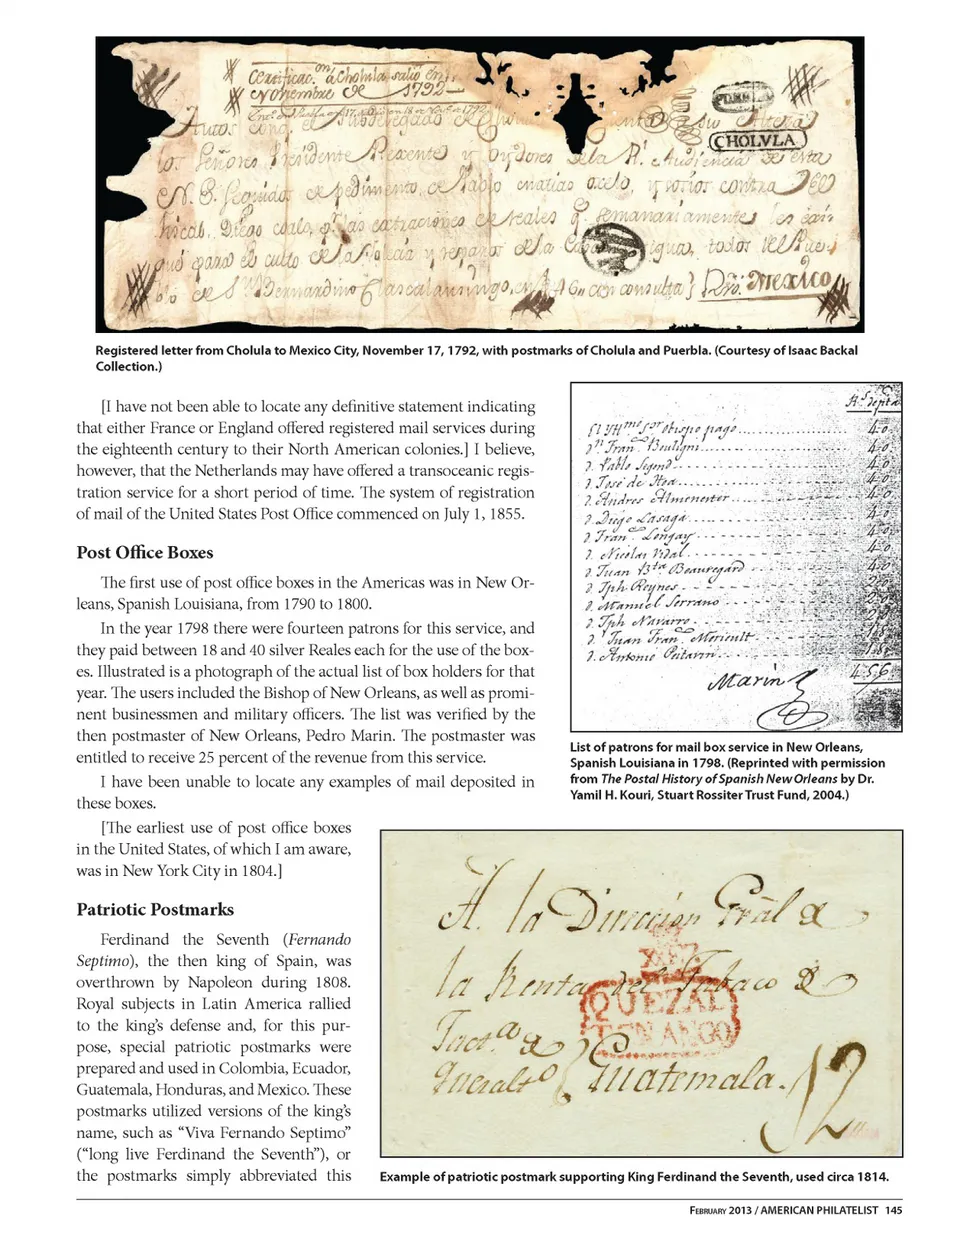 Certificac.on á Cholula salió en
Noviembre de 1792
CHOLVLA
Mexico
Registered letter from Cholula to Mexico City, November 17, 1792, with postmarks of Cholula and Puerbla. (Courtesy of Isaac Backal
Collection.)
[I have not been able to locate any definitive statement indicating
that either France or England offered registered mail services during
the eighteenth century to their North American colonies.] I believe,
however, that the Netherlands may have offered a transoceanic regis-
tration service for a short period of time. The system of registration
of mail of the United States Post Office commenced on July 1, 1855.
Post Office Boxes
The first use of post office boxes in the Americas was in New Or-
leans, Spanish Louisiana, from 1790 to 1800.
In the year 1798 there were fourteen patrons for this service, and
they paid between 18 and 40 silver Reales each for the use of the box-
es. Illustrated is a photograph of the actual list of box holders for that
year. The users included the Bishop of New Orleans, as well as promi-
nent businessmen and military officers. The list was verified by the
then postmaster of New Orleans, Pedro Marin. The postmaster was
entitled to receive 25 percent of the revenue from this service.
I have been unable to locate any examples of mail deposited in
these boxes.
[The earliest use of post office boxes
in the United States, of which I am aware,
was in New York City in 1804.]
Patriotic Postmarks
Ferdinand the Seventh (Fernando
Septimo), the then king of Spain, was
overthrown by Napoleon during 1808.
Royal subjects in Latin America rallied
to the king's defense and, for this pur-
pose, special patriotic postmarks were
prepared and used in Colombia, Ecuador,
Guatemala, Honduras, and Mexico. These
postmarks utilized versions of the king's
name, such as “Viva Fernando Septimo”
(“long live Ferdinand the Seventh”), or
the postmarks simply abbreviated this
obispo pagó 40
d.n Fran.co Bouligni 40
d. Pablo Segond 40
d. José de Hoa 40
d. Andres Almonester 40
d. Diego Lasaga 40
d. Fran.co Longay 40
d. Nicolas Vidal 40
d. Juan B.ta Beauregard 40
d. Jph Reynes
d. Manuel Serrano
d. Jph Navarro
d. Juan Fran.co Mericult
d. Antonio
456
Marin
List of patrons for mail box service in New Orleans,
Spanish Louisiana in 1798. (Reprinted with permission
from The Postal History of Spanish New Orleans by Dr.
Yamil H. Kouri, Stuart Rossiter Trust Fund, 2004.)
A. la Dirección Grâl de
la Renta del Tabaco
QUEZAL
TENANGO
Guatemala. 12
Example of patriotic postmark supporting King Ferdinand the Seventh, used circa 1814.
February 2013 / AMERICAN PHILATELIST 145